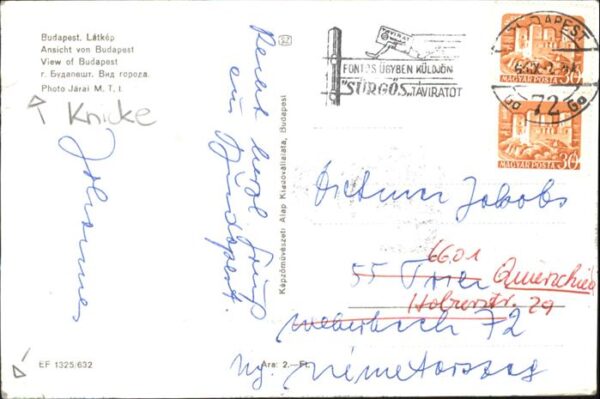 Budapest. Látkép
Ansicht von Budapest
View of Budapest
г. Будапешт. Вид города.
Photo Járai M. T. I.
Knicke
Johannes
Recht herzl. Gruß
aus
Budapest.
Képzőművészeti Alap Kiadóvállalata, Budapest
EF 1325/632
Ára: 2.—Ft
TÁVIRAT
FONTOS ÜGYBEN KÜLDJÖN
"SÜRGŐS" TÁVIRATOT
BUDAPEST
72
MAGYAR POSTA 30
MAGYAR POSTA 30
Dietmar Jakobs
6601
55 Trier Quierschied
Holzerstr. 29
Weberbach 72
Ny. Németország